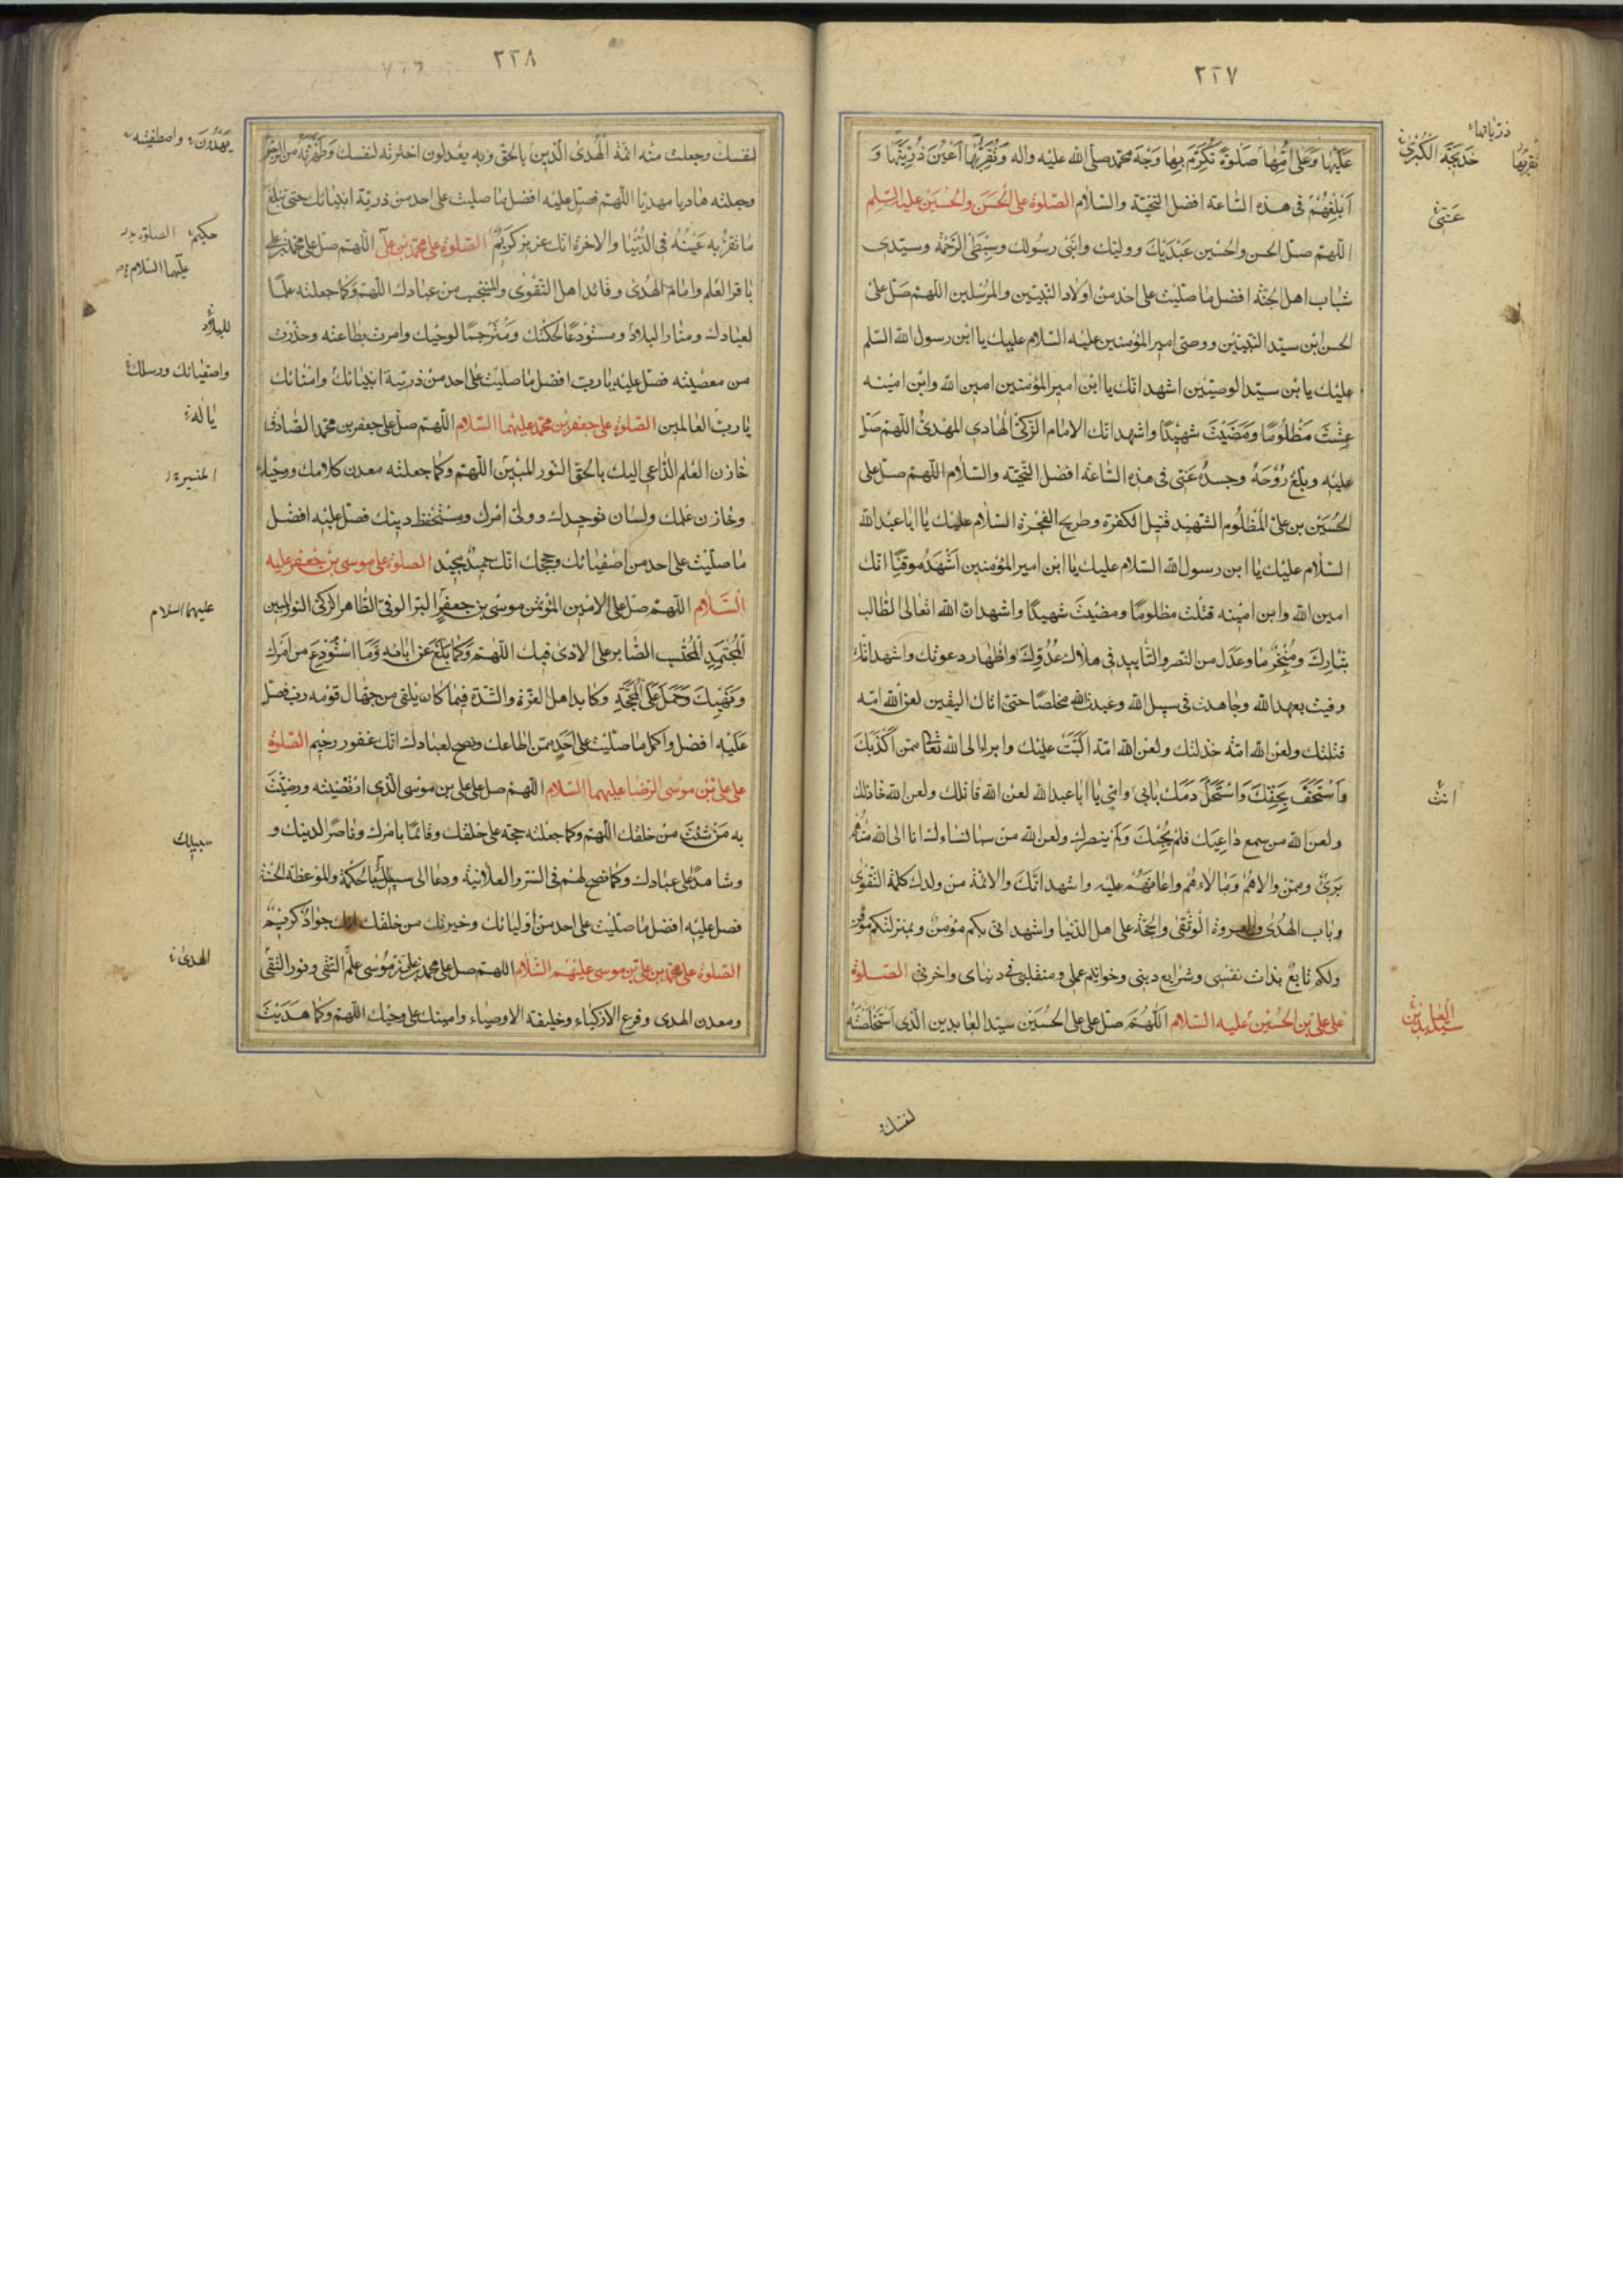 ٢٢٧
عَلَيْها وَعَلى اُمِّها صَلوةً تُكَرِّمُ بِها وَجْهَ محمّد صلّى الله عليه واله وَتُقِرُّ بِها اَعْيُنَ ذُرِّيَّتِها وَ
اَبْلِغْهُمْ فى هذه السّاعة افضل التحيّة والسّلام الصّلوة على الْحَسَن والْحُسَيْن عليهما السّلم
اللّهمّ صلّ الحسن والحسين عَبْدَيْكَ ووليّك وابنَى رسولك وسِبْطَىِ الرّحمة وسيّدى
شباب اهل الجنّة افضل ما صلّيت على احد من اولاد النّبيّين والمرسلين اللهمّ صَلّ على
الحسن ابن سيّد النّبيّين ووصىّ امير المؤمنين عليه السّلام عليك يا ابن رسول الله السّلم
عليك يا بن سيّد الوصيّين اشهد انّك يا ابن امير المؤمنين امين الله وابن امينه
عِشْتَ مَظْلُومًا وَمَضَيْتَ شَهِيدًا واشهد انّك الامام الزّكىّ الهادى المهدىّ اللّهمّ صَلّ
عليه وبلّغ رُوْحَهُ وجسدهُ عَنّى فى هذه السّاعة افضل التّحيّة والسّلام اللّهمّ صلّ على
الحُسَيْن بن علىّ المَظْلُوم الشّهيد قتيل الكفرة وطريح الفجرة السّلام عليك يا ابا عبد الله
السّلام عليك يا ابن رسول الله السّلام عليك يا ابن امير المؤمنين اَشْهَدُ موقنًا انّك
امين الله وابن امينه قتلت مظلومًا ومضيت شهيدًا واشهد انّ الله تعالى الطّالب
بثارك ومُنْجِزٌ ما وعدك من النصر والتّأييد فى هلاك عَدُوِّكَ واظهار دعوتك واشهد انّك
وفيت بعهد الله وجاهدت فى سبيل الله وعبدت الله مخلصًا حتى اتاك اليقين لعن الله امّة
قتلتك ولعن الله امّة خذلتك ولعن الله امّة اَلَّبَتْ عليك وابرأ الى الله تعالى ممّن اَكْذَبَكَ
وَاسْتَخَفَّ بِحَقِّكَ وَاسْتَحَلَّ دَمَكَ بابى وامّى يا ابا عبد الله لعن الله قاتلك ولعن الله خاذلك
ولعن الله من سمع داعِيَكَ فلم يُجِبْكَ وَلَمْ ينصرك ولعن الله من سبا نساءك انا الى الله منهم
بَرِىءٌ وممّن والاهُمْ ومالأهم واعانَهُمْ عليه واشهد انّكَ والائمّة من ولدك كلمة التّقوى
وباب الهُدى والعروة الوُثْقى والحجّة على اهل الدّنيا واشهد انّى بكم مؤمنٌ وبمنزلتكم موقن
ولكم تابعٌ بذات نفسى وشرايع دينى وخواتيم عملى ومنقلبى فى دنياى واخرتى الصّلوة
على علىّ بن الحُسَيْن عليه السّلام اللّهمّ صلّ على علىّ الحُسَيْن سيّد العابدين الّذى اسْتَخْلَصْتَهُ
لنفسك
ذرّياتها
تقرّبها
خَديجَة الكُبْرى
عَنّى
انت
سيّد العابدين
٢٢٨
لنفسك وجعلت منه ائمّة الهدى الّذين بالحقّ وبه يعدلون اخترته لنفسك وَطَهَّرْتَهُ من الرّجس
وجعلته هاديا مهديّا اللّهمّ فصلّ عليه افضل ما صلّيت على احد من ذريّة انبيائك حتى تبلغ
ما تقرّ به عَيْنهُ فى الدّنيا والاخرة انّك عزيز كَريمٌ الصّلوة على محمّد بن علىّ اللّهمّ صلّ على محمّد بن على
باقر العلم وامام الهُدى وقائد اهل التّقوى والمنتجب من عبادك اللّهمّ وكما جعلته علمًا
لعبادك ومنارا لبلادك ومستودعًا لحكمتك ومُتَرجِمًا لوحيك وامرت بطاعته وحذّرت
من معصيته فصلّ عليه يا ربّ افضل ما صلّيت على احد من ذريّة انبيائك وامنائك
يا ربّ العالمين الصّلوة على جعفر بن محمّد عليهما السّلام اللّهمّ صلّ على جعفر بن محمّد الصّادق
خازن العلم الدّاعى اليك بالحقّ النّور المبين اللّهمّ وكما جعلته معدن كلامك ووحيك
وخازن علمك ولسان توحيدك وولىّ امرك ومستحفظ دينك فصلّ عليه افضل
ما صلّيت على احد من اصفيائك وحججك انّك حميد مجيد الصلوة على موسى بن جعفر عليه
السّلام اللّهمّ صلّ على الامين المؤتمن موسى بن جعفر البرّ الوفىّ الطّاهر الزّكىّ النّور المبين
المُجْتَهِدِ المُحْتَسِب الصّابر على الاذى فيك اللّهمّ وكما بَلَّغَ عن ابائه وما اسْتُوْدِعَ من امرك
ونهيك وَحَمَلَ عَلَى المَحَجَّةِ وكابد اهل العزّة والشدّة فيما كان يلقى من جهّال قومه ربّ فصلّ
عَلَيْهِ افضل واكمل ما صلّيت على احَدٍ ممّن اطاعك ونصح لعبادك انّك غفور رحيم الصّلوة
على علىّ بن موسى الرّضا عليهما السّلام اللّهمّ صل على علىّ بن موسى الّذى ارتضيته ورضيت
به مَنْ شئتَ من خلقك اللّهمّ وكما جعلته حجّة على خلقك وقائمًا بامرك وناصرًا لدينك و
وشاهدًا على عبادك وكما نصح لهم فى السّرّ والعلانية ودعا الى سبيلك بالحكمة والموعظة الحسنة
فصل عليه افضل ما صلّيت على احد من اوليائك وخيرتك من خلقك انّك جوادٌ كريمٌ
الصّلوة على محمّد بن علىّ بن موسى عليهم السّلام اللهمّ صل على محمّد بن علىّ بن موسى علم التّقى ونور التّقى
ومعدن الهدى وفرع الازكياء وخليفة الاوصياء وامينك على وحيك اللّهمّ وكما هديت
يَهْدُونَ واصطفيته
حكيم الصلوة
عليهما السّلام
للبلاد
واصفيائك ورسلك
يا اله
المنير
عليهما السلام
سبيلك
الهدى